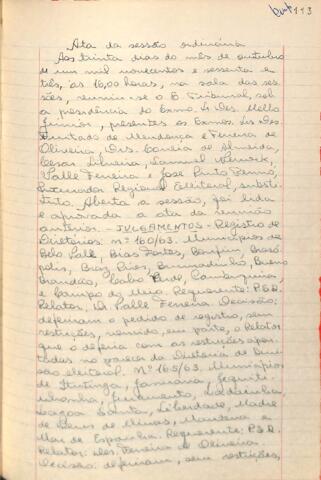 113
Ata da sessão ordinária
Aos trinta dias do mês de outubro
de um mil novecentos e sessenta e
três, às 16,00 horas, na sala das ses-
sões, reuniu-se o E. Tribunal, sob
a presidência do Exmo. Sr. Des. Mello
Júnior, presentes os Exmos. Srs. Des.
Furtado de Mendonça e Ferreira de
Oliveira, Drs. Corrêa de Almeida,
Cesar Silveira, Samuel Werneck,
Valle Ferreira e José Pinto Renno,
Procurador Regional Eleitoral, substi-
tuto. Aberta a sessão, foi lida
e aprovada a ata da reunião
anterior. - JULGAMENTOS - Registro de
Diretórios: nº 160/63. Municípios de
Belo Valle, Bias Fortes, Bonfim, Brasó-
polis, Braz Pires, Brumadinho, Bueno
Brandão, Cabo Verde, Cambuquira
e Campo do Meio. Requerente: P.S.D.
Relator, Dr. Valle Ferreira. Decisão:
deferiram o pedido de registro, sem
restrições, vencido, em parte, o Relator
que o deferia com as restrições apon-
tadas no parecer da Diretoria de Divi-
são eleitoral. Nº 165/63. Municípios
de Itutinga, Jequiti-
nhonha, Juramento, Ladainha,
Lagoa Santa, Liberdade, Madre
de Deus de Minas, Mantena e
Mar de Espanha. Requerente: P.S.D.
Relator: Des. Ferreira de Oliveira.
Decisão: deferiram, sem restrições,